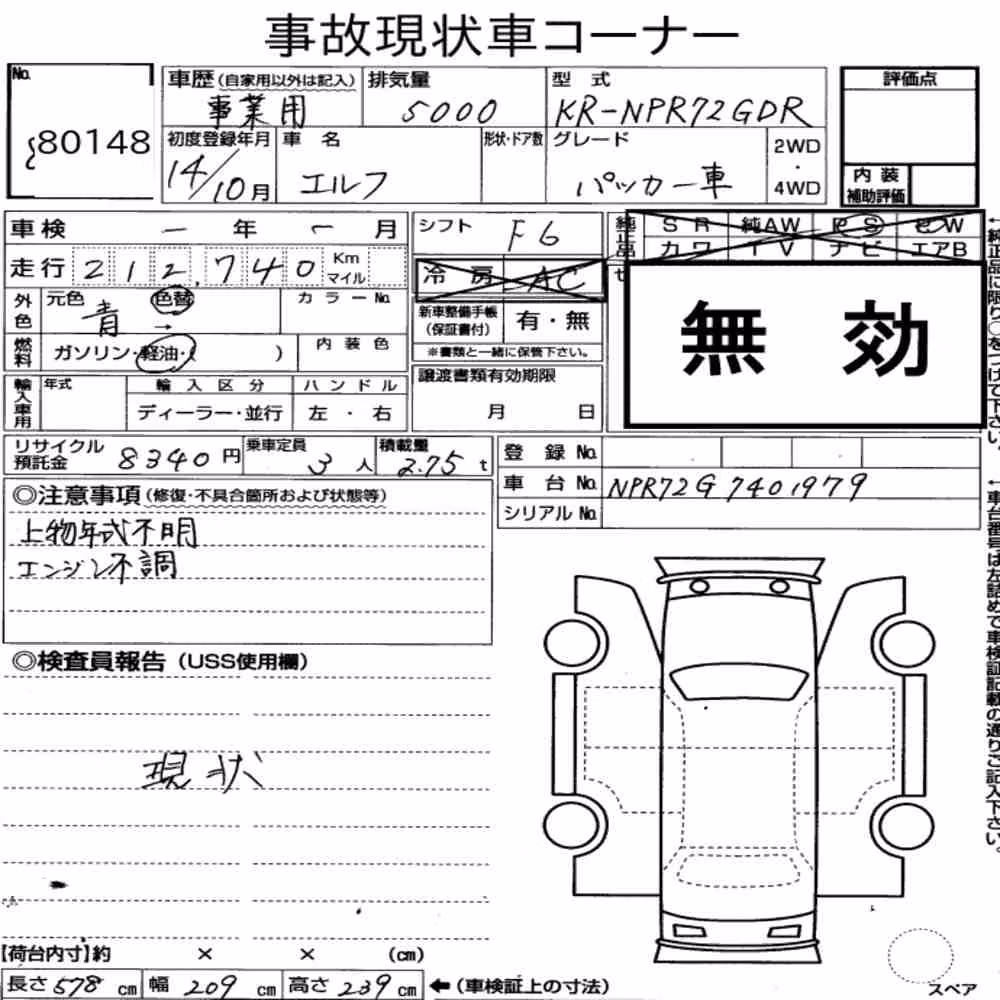 事故現状車コーナー
No. 80148
車歴(自家用以外は記入) 事業用
排気量 5000
型式 KR-NPR72GDR
評価点
初度登録年月 14/10月
車名 エルフ
形状・ドア数
グレード パッカー車
2WD・4WD
内装補助評価
車検 ー 年 ー 月
シフト F6
純正品
SR 純AW PS PW
カワ TV ナビ エアB
走行 212,740 Km マイル
冷房 AC
無効
外色 元色 青 色替 →
カラーNo.
新車整備手帳(保証書付) 有・無
※書類と一緒に保管下さい。
燃料 ガソリン・軽油・( )
内装色
輸入車用 年式
輸入区分 ディーラー・並行
ハンドル 左・右
譲渡書類有効期限
月 日
リサイクル預託金 8340円
乗車定員 3人
積載量 2.75t
登録No.
車台No. NPR72G 7401979
シリアルNo.
◎注意事項(修復・不具合箇所および状態等)
上物年式不明
エンジン不調
◎検査員報告(USS使用欄)
現状
【荷台内寸】約 × × (cm)
長さ 578 cm 幅 209 cm 高さ 239 cm ←(車検証上の寸法)
スペア
←純正品に限り○をつけて下さい。
←車台番号は左詰めで車検証記載の通りご記入下さい。